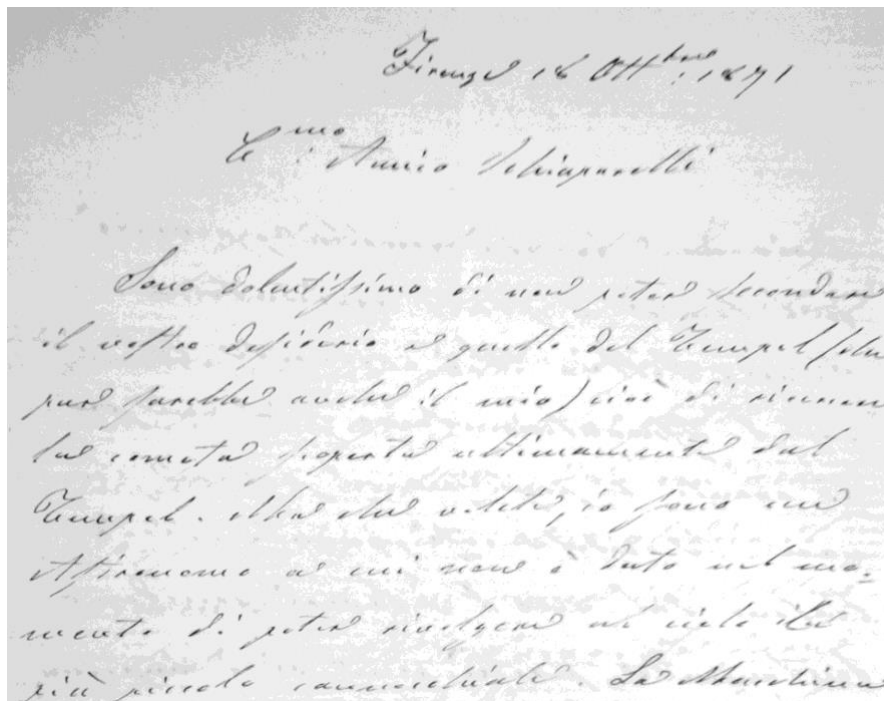 Firenze 16 Ottbre 1871
C.mo Amico Schiaparelli
Sono dolentissimo di non poter secondare
il vostro desiderio e quello del Tempel (che
pure sarebbe anche il mio) cioè di
la cometa scoperta ultimamente dal
Tempel. Ma che volete, io sono un
Astronomo a cui non è dato nel mo=
mento di poter rivolgere al cielo il
più piccolo cannocchiale. La Macchina